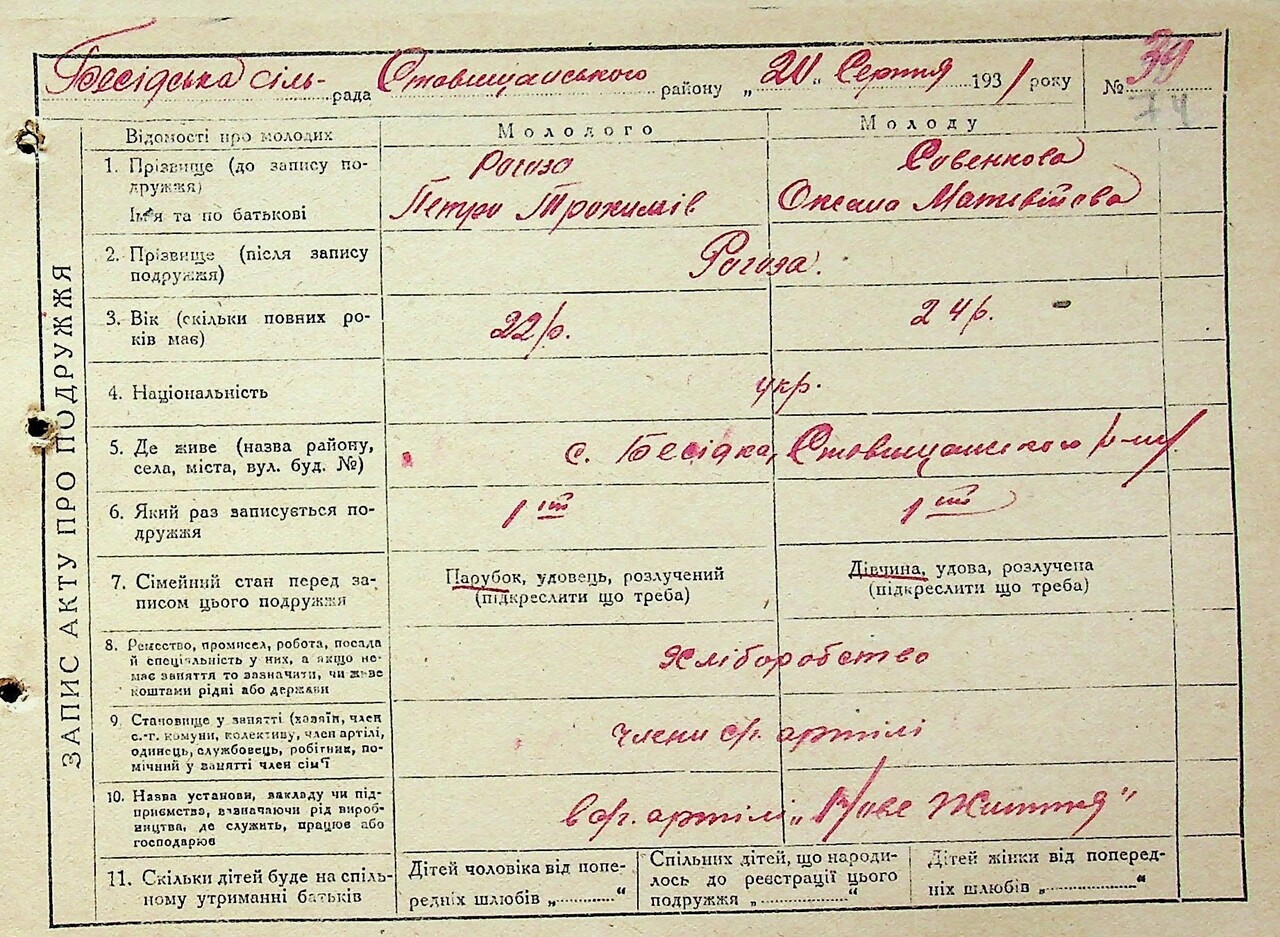 Бесідська сіль-рада Ставищанського району „20“ Серпня 1931 року № 39
74
ЗАПИС АКТУ ПРО ПОДРУЖЖЯ
Відомості про молодих
Молодого
Молоду
1. Прізвище (до запису по-
дружжя)
Рогоза
Совенкова
Ім'я та по батькові
Петро Трохимів
Оксана Матвійова
2. Прізвище (після запису
подружжя)
Рогоза.
3. Вік (скільки повних ро-
ків має)
22 р.
24 р.
4. Національність
укр.
5. Де живе (назва району,
села, міста, вул. буд. №)
с. Бесідка, Ставищанського р-ну
6. Який раз записується по-
дружжя
1 ий
1 ий
7. Сімейний стан перед за-
писом цього подружжя
Парубок, удовець, розлучений
(підкреслити що треба)
Дівчина, удова, розлучена
(підкреслити що треба)
8. Ремество, промисел, робота, посада
й спеціяльність у них, а якщо не-
має заняття то зазначити, чи живе
коштами рідні або держави
Хліборобство
9. Становище у занятті (хазяїн, член
с.-г. комуни, колективу, член артілі,
одинець, службовець, робітник, по-
мічний у занятті член сім'ї
члени с/г. артілі
10. Назва установи, закладу чи під-
приємства, взазначаючи рід вироб-
ництва, де служить, працює або
господарює
в с/г. артілі „Нове Життя"
11. Скільки дітей буде на спіль-
ному утриманні батьків
Дітей чоловіка від попе-
редніх шлюбів „..........“
Спільних дітей, що народи-
лось до реєстрації цього
подружжя „..............“
Дітей жінки від поперед-
ніх шлюбів „..............“